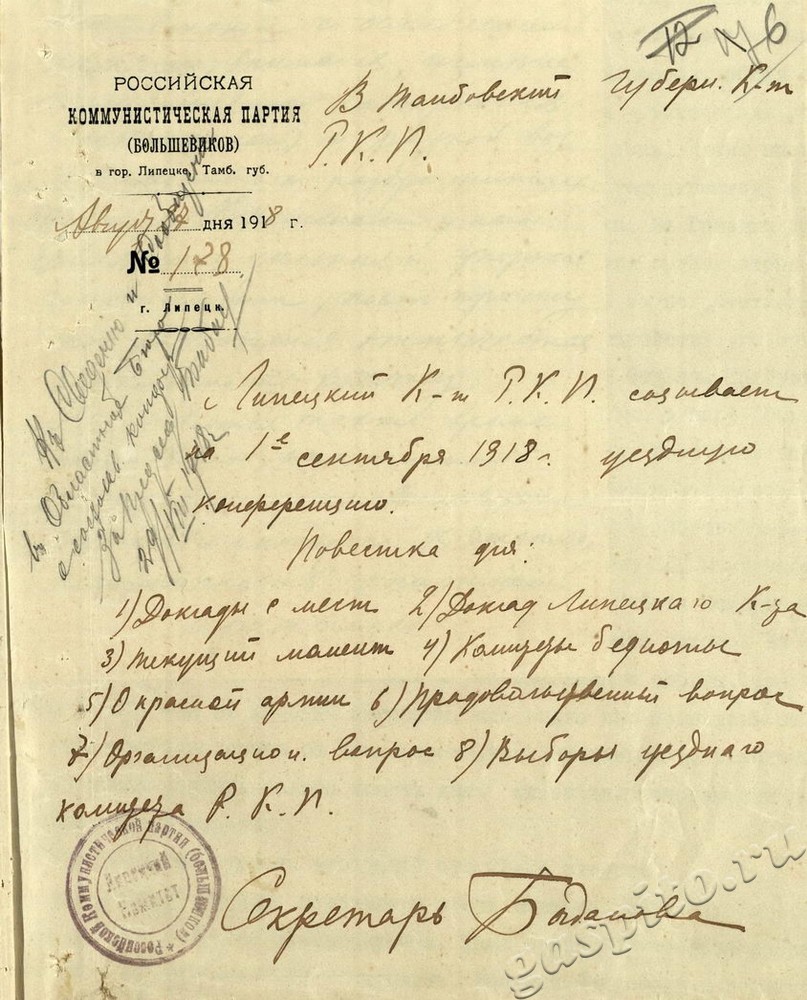 12 76
РОССИЙСКАЯ
КОММУНИСТИЧЕСКАЯ ПАРТИЯ
(БОЛЬШЕВИКОВ)
в гор. Липецке, Тамб. губ.
В Тамбовский Губерн. К-т
Р.К.П.
Август 7 дня 1918 г.
№ 128
г. Липецк.
Къ Сведению и
в Областной Бюро
29/VIII 1918
Липецкий К-т Р.К.П. созывает
на 1е сентября 1918 г. уездную
конференцию.
Повестка дня:
1) Доклады с мест 2) Доклад Липецкаго К-та
3) Текущий момент 4) Комитеты бедноты
5) О красной армии 6) Продовольственный вопрос
7) Организацион. вопрос 8) Выборы уезднаго
комитета Р.К.П.
Российской Коммунистической партии (большевиков)
Липецкий
Комитет
Секретарь
gaspito.ru